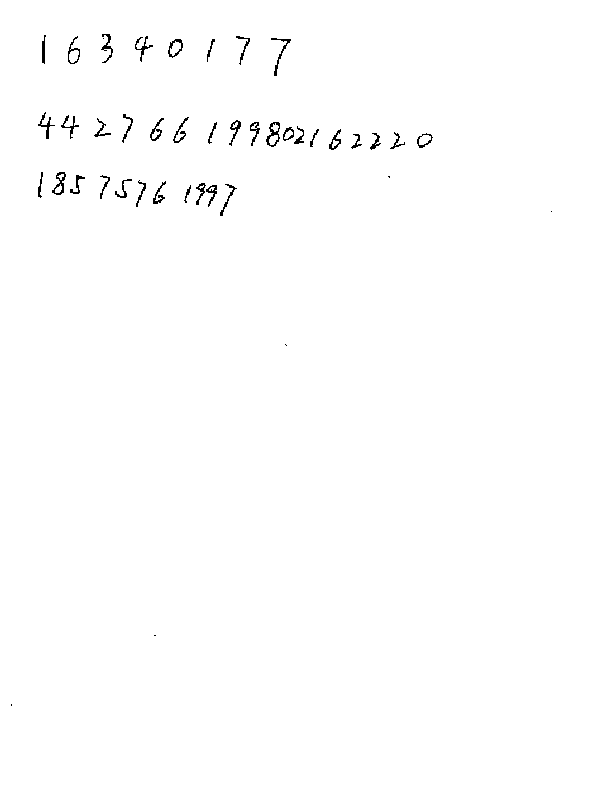 16340177
442766199802162220
18575761997